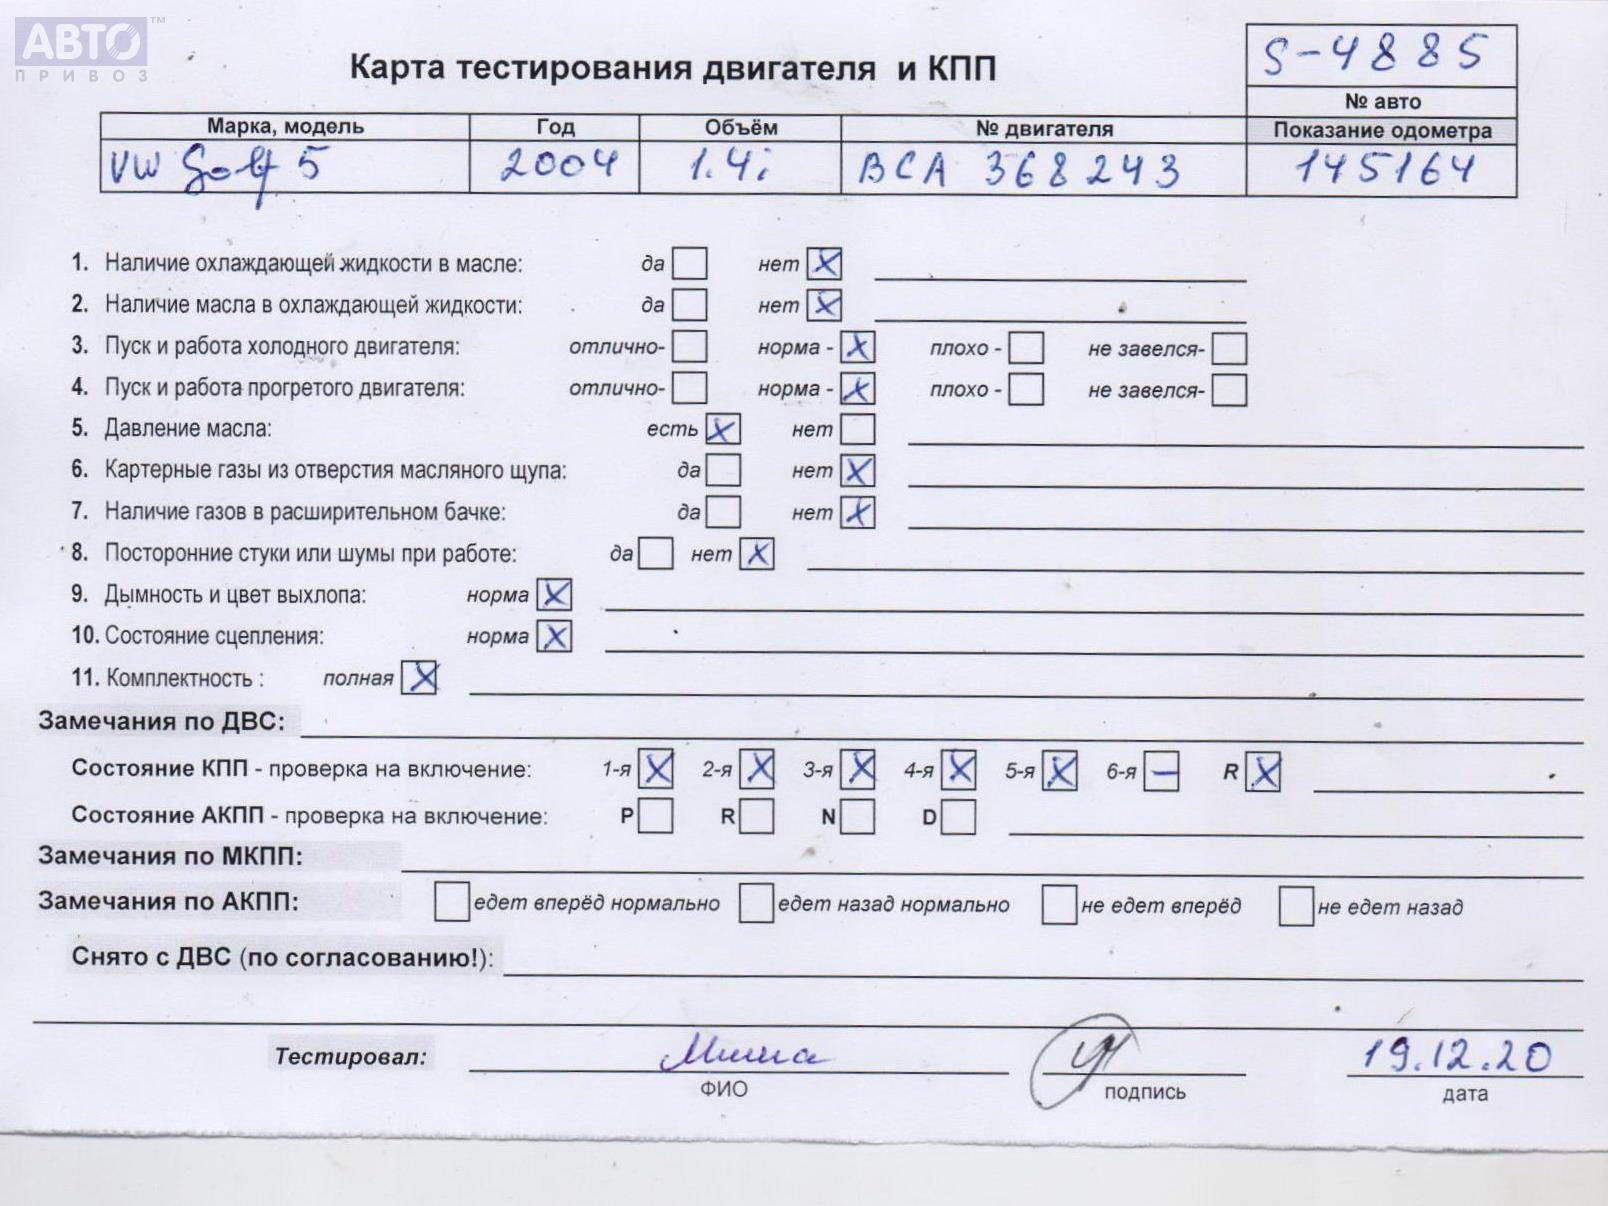 АВТО™
ПРИВОЗ
Карта тестирования двигателя и КПП
S-4885
№ авто
Марка, модель Год Объём № двигателя Показание одометра
VW Golf 5 2004 1.4i BCA 368243 145164
1. Наличие охлаждающей жидкости в масле: да нет X
2. Наличие масла в охлаждающей жидкости: да нет X
3. Пуск и работа холодного двигателя: отлично- норма - X плохо - не завелся-
4. Пуск и работа прогретого двигателя: отлично- норма - X плохо - не завелся-
5. Давление масла: есть X нет
6. Картерные газы из отверстия масляного щупа: да нет X
7. Наличие газов в расширительном бачке: да нет X
8. Посторонние стуки или шумы при работе: да нет X
9. Дымность и цвет выхлопа: норма X
10. Состояние сцепления: норма X
11. Комплектность : полная X
Замечания по ДВС:
Состояние КПП - проверка на включение: 1-я X 2-я X 3-я X 4-я X 5-я X 6-я – R X
Состояние АКПП - проверка на включение: P R N D
Замечания по МКПП:
Замечания по АКПП: едет вперёд нормально едет назад нормально не едет вперёд не едет назад
Снято с ДВС (по согласованию!):
Тестировал: Миша 19.12.20
ФИО подпись дата